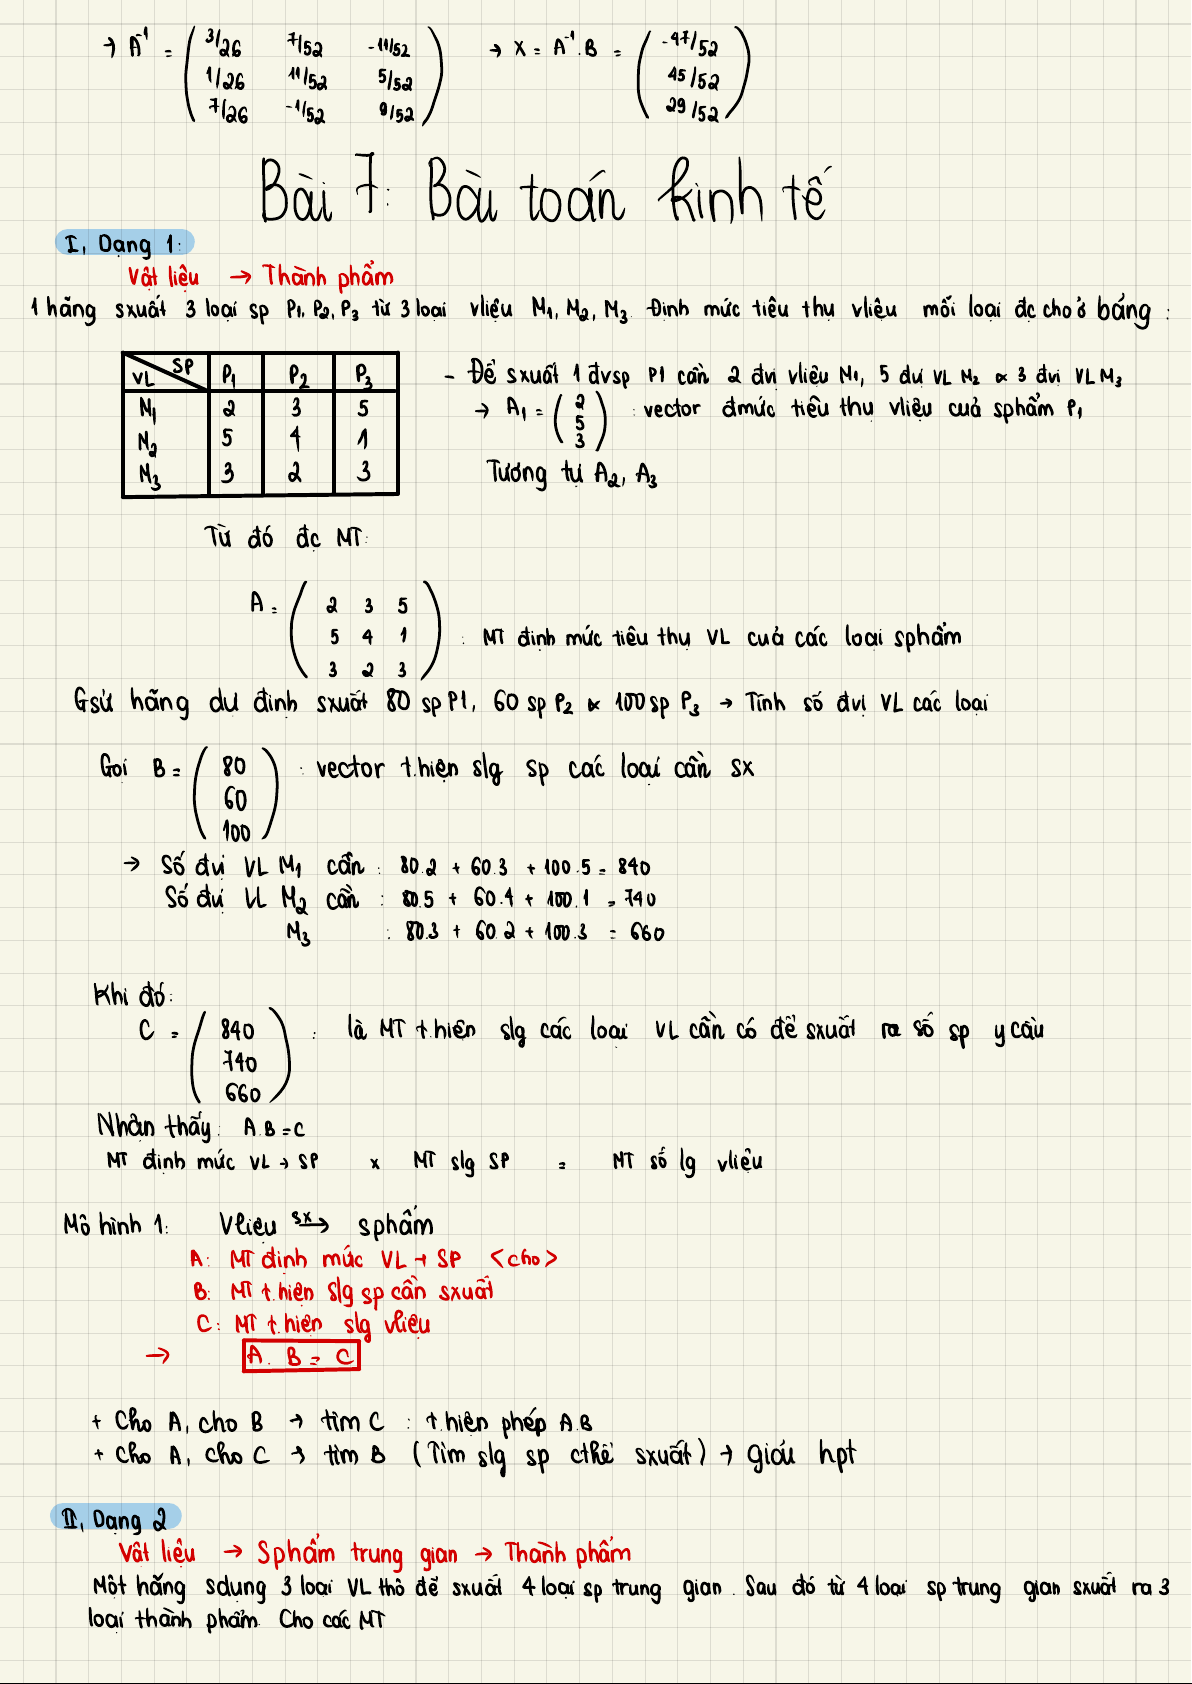 → A⁻¹ = ( 3/26 7/52 -11/52 → X = A⁻¹.B = ( -47/52
1/26 11/52 5/52 45/52
7/26 -1/52 9/52 ) 29/52 )
Bài 7: Bài toán kinh tế
I, Dạng 1:
Vật liệu → Thành phẩm
1 hãng sxuất 3 loại sp P₁, P₂, P₃ từ 3 loại vliệu M₁, M₂, M₃. Định mức tiêu thụ vliệu mỗi loại đc cho ở bảng :
VL SP P₁ P₂ P₃
M₁ 2 3 5
M₂ 5 4 1
M₃ 3 2 3
- Để sxuất 1 đvsp P1 cần 2 đvị vliệu M₁, 5 đvị VL M₂ & 3 đvị VL M₃
→ A₁ = ( 2 5 3 ) : vector đmức tiêu thụ vliệu của sphẩm P₁
Tương tự A₂, A₃
Từ đó đc MT:
A = ( 2 3 5
5 4 1 : MT định mức tiêu thụ VL của các loại sphẩm
3 2 3 )
Gsử hãng dự định sxuất 80 sp P1, 60 sp P₂ & 100 sp P₃ → Tính số đvị VL các loại
Gọi B = ( 80 : vector t.hiện slg sp các loại cần sx
60
100 )
→ Số đvị VL M₁ cần : 80.2 + 60.3 + 100.5 = 840
Số đvị VL M₂ cần : 80.5 + 60.4 + 100.1 = 740
M₃ : 80.3 + 60.2 + 100.3 = 660
Khi đó:
C = ( 840 : là MT t.hiện slg các loại VL cần có để sxuất ra số sp y cầu
740
660 )
Nhận thấy: A.B = C
MT định mức VL → SP x MT slg SP = MT số lg vliệu
Mô hình 1: Vliệu sx→ sphẩm
A: MT định mức VL → SP <cho>
B: MT t.hiện slg sp cần sxuất
C: MT t.hiện slg vliệu
→ A. B = C
+ Cho A, cho B → tìm C : t.hiện phép A.B
+ Cho A, cho C → tìm B (Tìm slg sp cthể sxuất) → giải hpt
II, Dạng 2
Vật liệu → Sphẩm trung gian → Thành phẩm
Một hãng sdụng 3 loại VL thô để sxuất 4 loại sp trung gian. Sau đó từ 4 loại sp trung gian sxuất ra 3
loại thành phẩm. Cho các MT